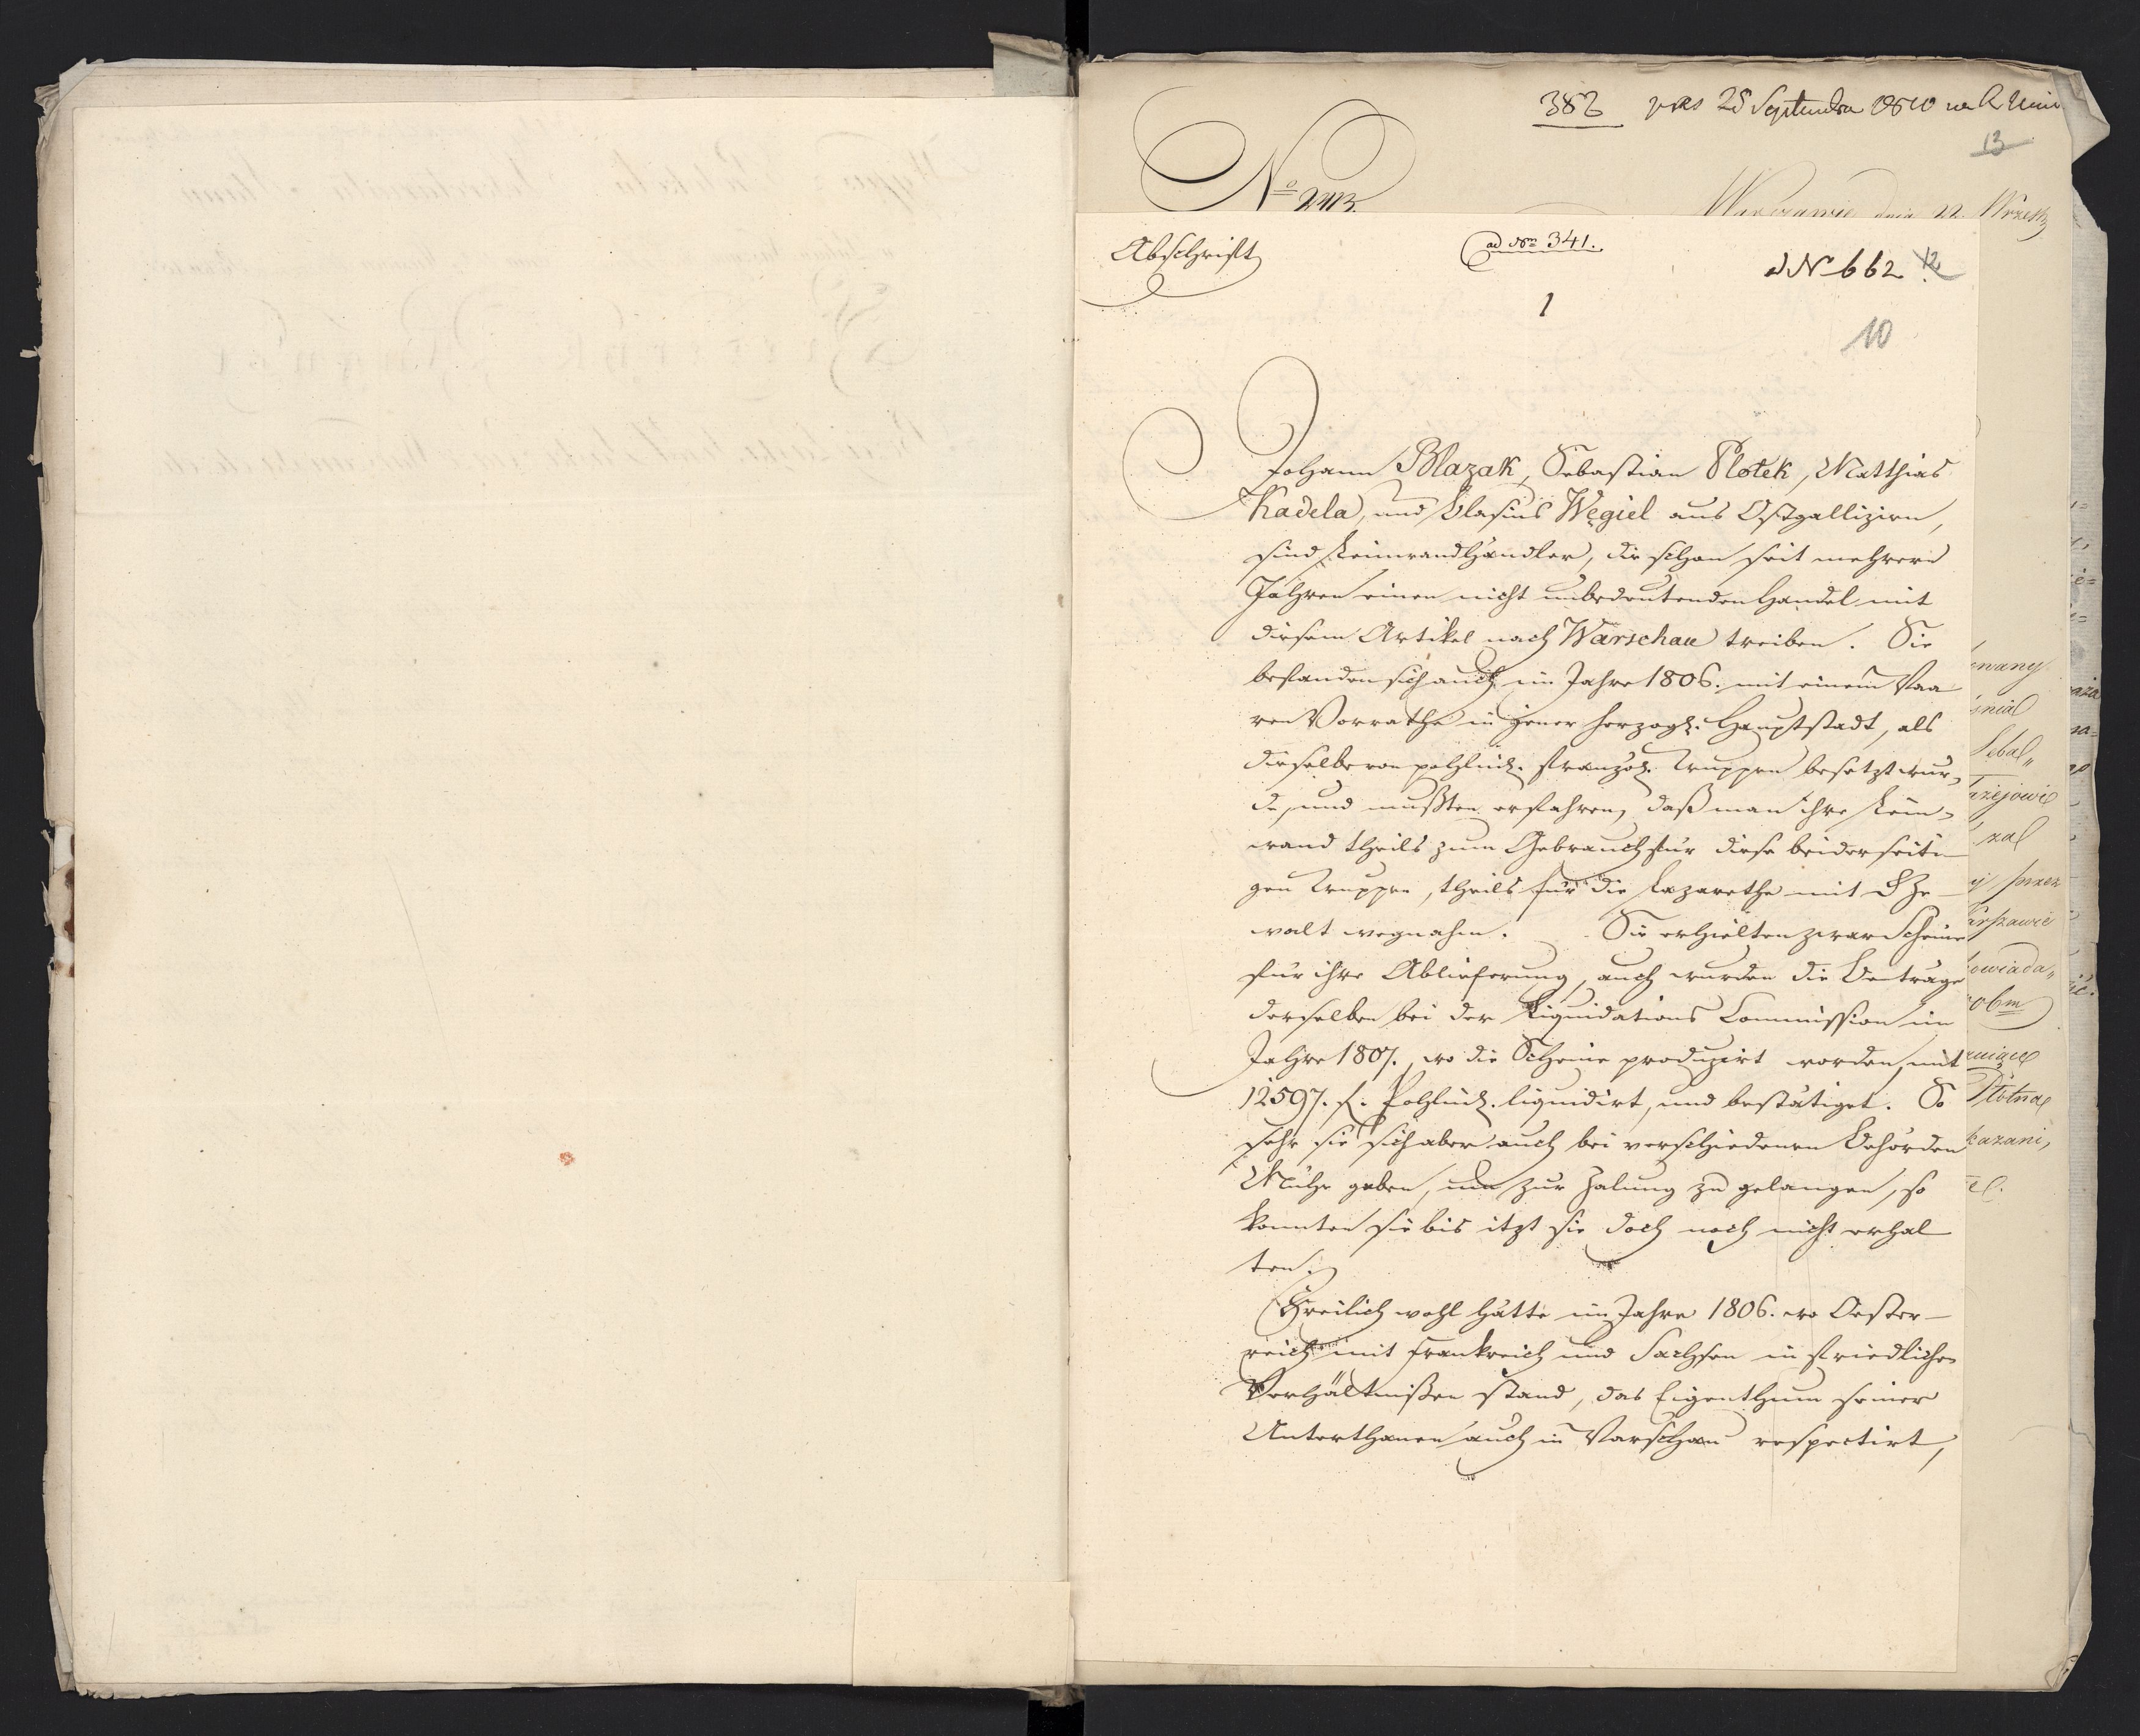 383 pras 25 Septembra 1810
13
No 2413.
Warszawie dnia 22. Wrześ
Abschrift
ad Nrm 341.
ad N 662
12
1
10
Johann Blazak, Sebastian Plotek, Matthias
Kadela, und Blasius Węgiel aus Ostgallizien,
sind Leinwandhändler, die schon seit mehrere
Jahren einen nicht unbedeutenden Handel mit
diesem Artikel nach Warschau treiben. Sie
befanden sich auch im Jahre 1806. mit einem Waa
ren Vorrathe in jener herzogl. Hauptstadt, als
dieselbe von pohlnisch. französ. Truppen besetzt wur-
de, und mußten erfahren, daß man ihre Lein-
wand theils zum Gebrauch für diese beiderseiti-
gen Truppen, theils für die Lazarethe mit Ge-
walt wegnahm. Sie erhielten zwar Scheine
für ihre Ablieferung, auch wurden die Beträge
derselben bei der Liquidations Commission im
Jahre 1807., wo die Scheine produzirt worden, mit
12597. f. Pohlnisch. liquidirt, und bestätiget. So
sehr sie sich aber auch bei verschiedenen Behörden
Mühe gaben, um zur Zalung zu gelangen, so
konnten sie bis itzt sie doch noch nicht erhal
ten.
Freilich wohl hätte im Jahre 1806. wo Oester-
reich mit Frankreich und Sachsen in friedlichen
Verhältnißen stand, das Eigenthum seiner
Unterthanen auch in Warschau respectirt,